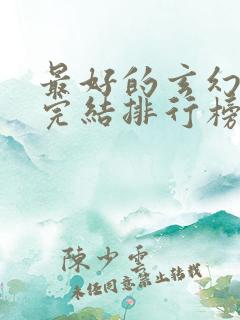 最好的玄幻
完結排行榜
陳少雲
未經同意禁止轉載